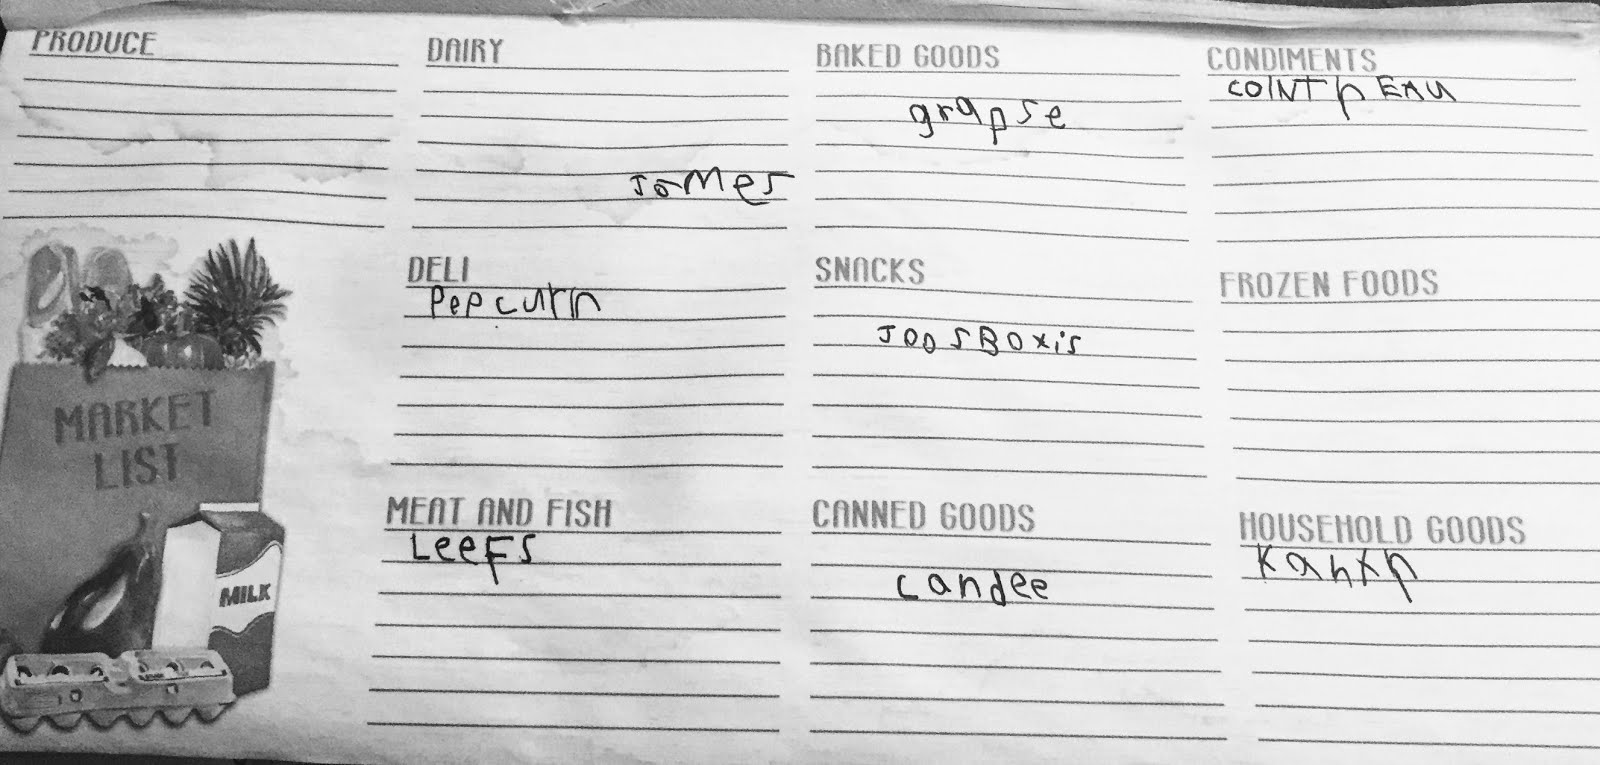 PRODUCE
DAIRY
Jomes
BAKED GOODS
grapse
CONDIMENTS
COINThEAU
DELI
Pepcurn
SNACKS
JOOSBOxis
FROZEN FOODS
MARKET
LIST
MILK
MEAT AND FISH
LeeFS
CANNED GOODS
candee
HOUSEHOLD GOODS